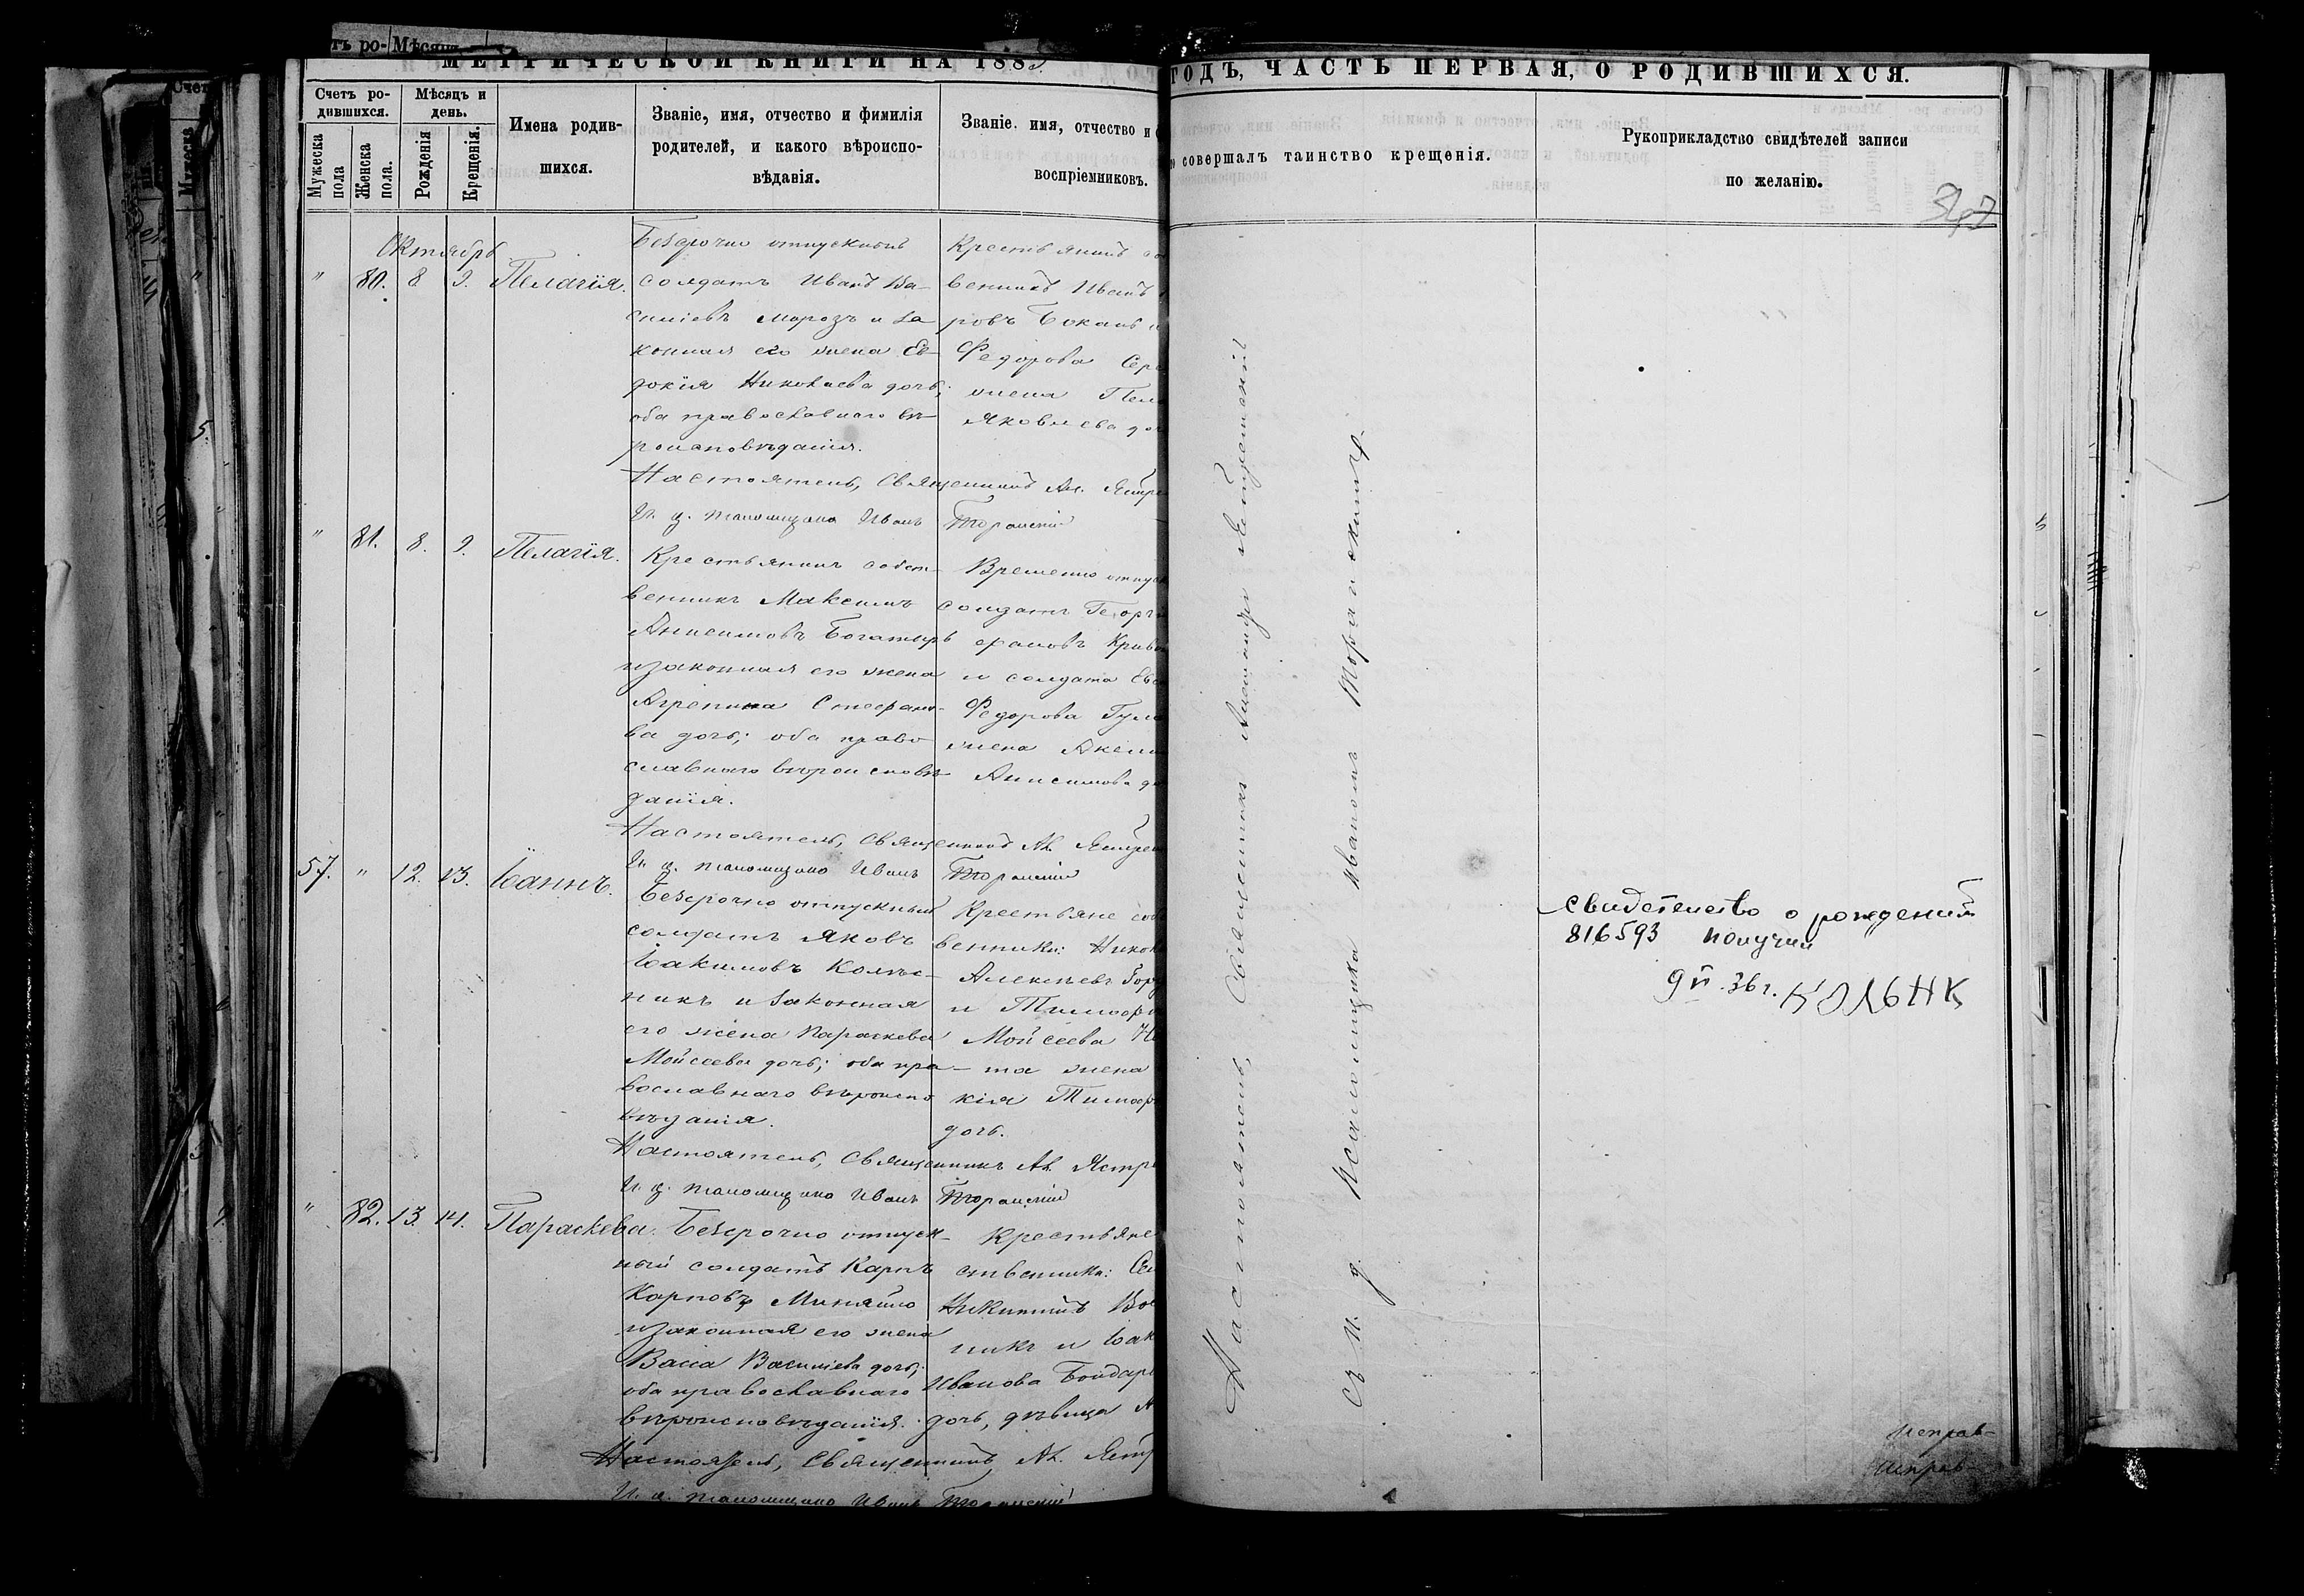 МЕТРИЧЕСКОЙ КНИГИ НА 188
ГОДЪ, ЧАСТЬ ПЕРВАЯ, О РОДИВШИХСЯ.
Счетъ ро-
дившихся.
Мужеска
пола
Женска
пола.
Мѣсяцъ и
день.
Рожденія
Крещенія.
Имена родив-
шихся.
Званіе, имя, отчество и фимилія
родителей, и какого вѣроиспо-
вѣданія.
Званіе. имя, отчество и
воспріемниковъ.
совершалъ таинство крещенія.
Рукоприкладство свидѣтелей записи
по желанію.
Октябрь
" 80. 8 9. Пелагія.
Безсрочно отпускный
солдатъ Иванъ Ва-
силіевъ Морозъ и за
конная его жена Ев-
докія Николаева дочь;
оба православнаго вѣ-
роисповѣданія.
Крестьянинъ со
венникъ Иванъ
ровъ Бокань и
Федорова Сер
жена Пела
Яковлева до
Настоятель, Священникъ Ал. Ястре
И. д. псаломщика Иванъ Торанскій
" 81. 8. 9. Пелагія.
Крестьянинъ собст-
венникъ Максимъ
Анисимовъ Богатырь
и законная его жена
Агрепина Стефано-
ва дочь; оба право
славнаго вѣроисповѣ-
данія.
Временно отпуск
солдатъ Георгі
фановъ Криво
и солдата Евс
Федорова Гуле
жена Акели
Анисимова до
Настоятель, Священникъ Ал. Ястре
И. д. псаломщика Иванъ Торанскій
57. " 12. 13. Іоаннъ.
Безсрочно отпускный
солдатъ Яковъ
Іакимовъ Колѣс-
никъ и законная
его жена Параскева
Мойсеева дочь; оба пра-
вославнаго вѣроиспо
вѣданія.
Крестьяне соб
венники: Никол
Алексѣевъ Гор
и Тимоф
Мойсеева Н
та жена
кія Тимоф
дочь.
Настоятель, Священникъ Ал. Ястре
И. д. псаломщика Иванъ Торанскій
" 82. 13. 14. Параскева.
Безсрочно отпуск-
ный солдатъ Карпъ
Карповъ Миняйло
и законная его жена
Васса Василіева дочь;
оба православнаго
вѣроисповѣданія.
Крестьяне
ственники: Се
Никитинъ
никъ и Іак
Иванова Бондар
дочь, дѣвица А
Настоятель, Священникъ Ал. Ястр
И. д. псаломщика Иванъ Торанскій
Настоятель, Священникъ Александръ Ястремскій
Съ И. д. Псаломщика Иваномъ Торанскимъ.
Свидетельство о рождений
816593 получил